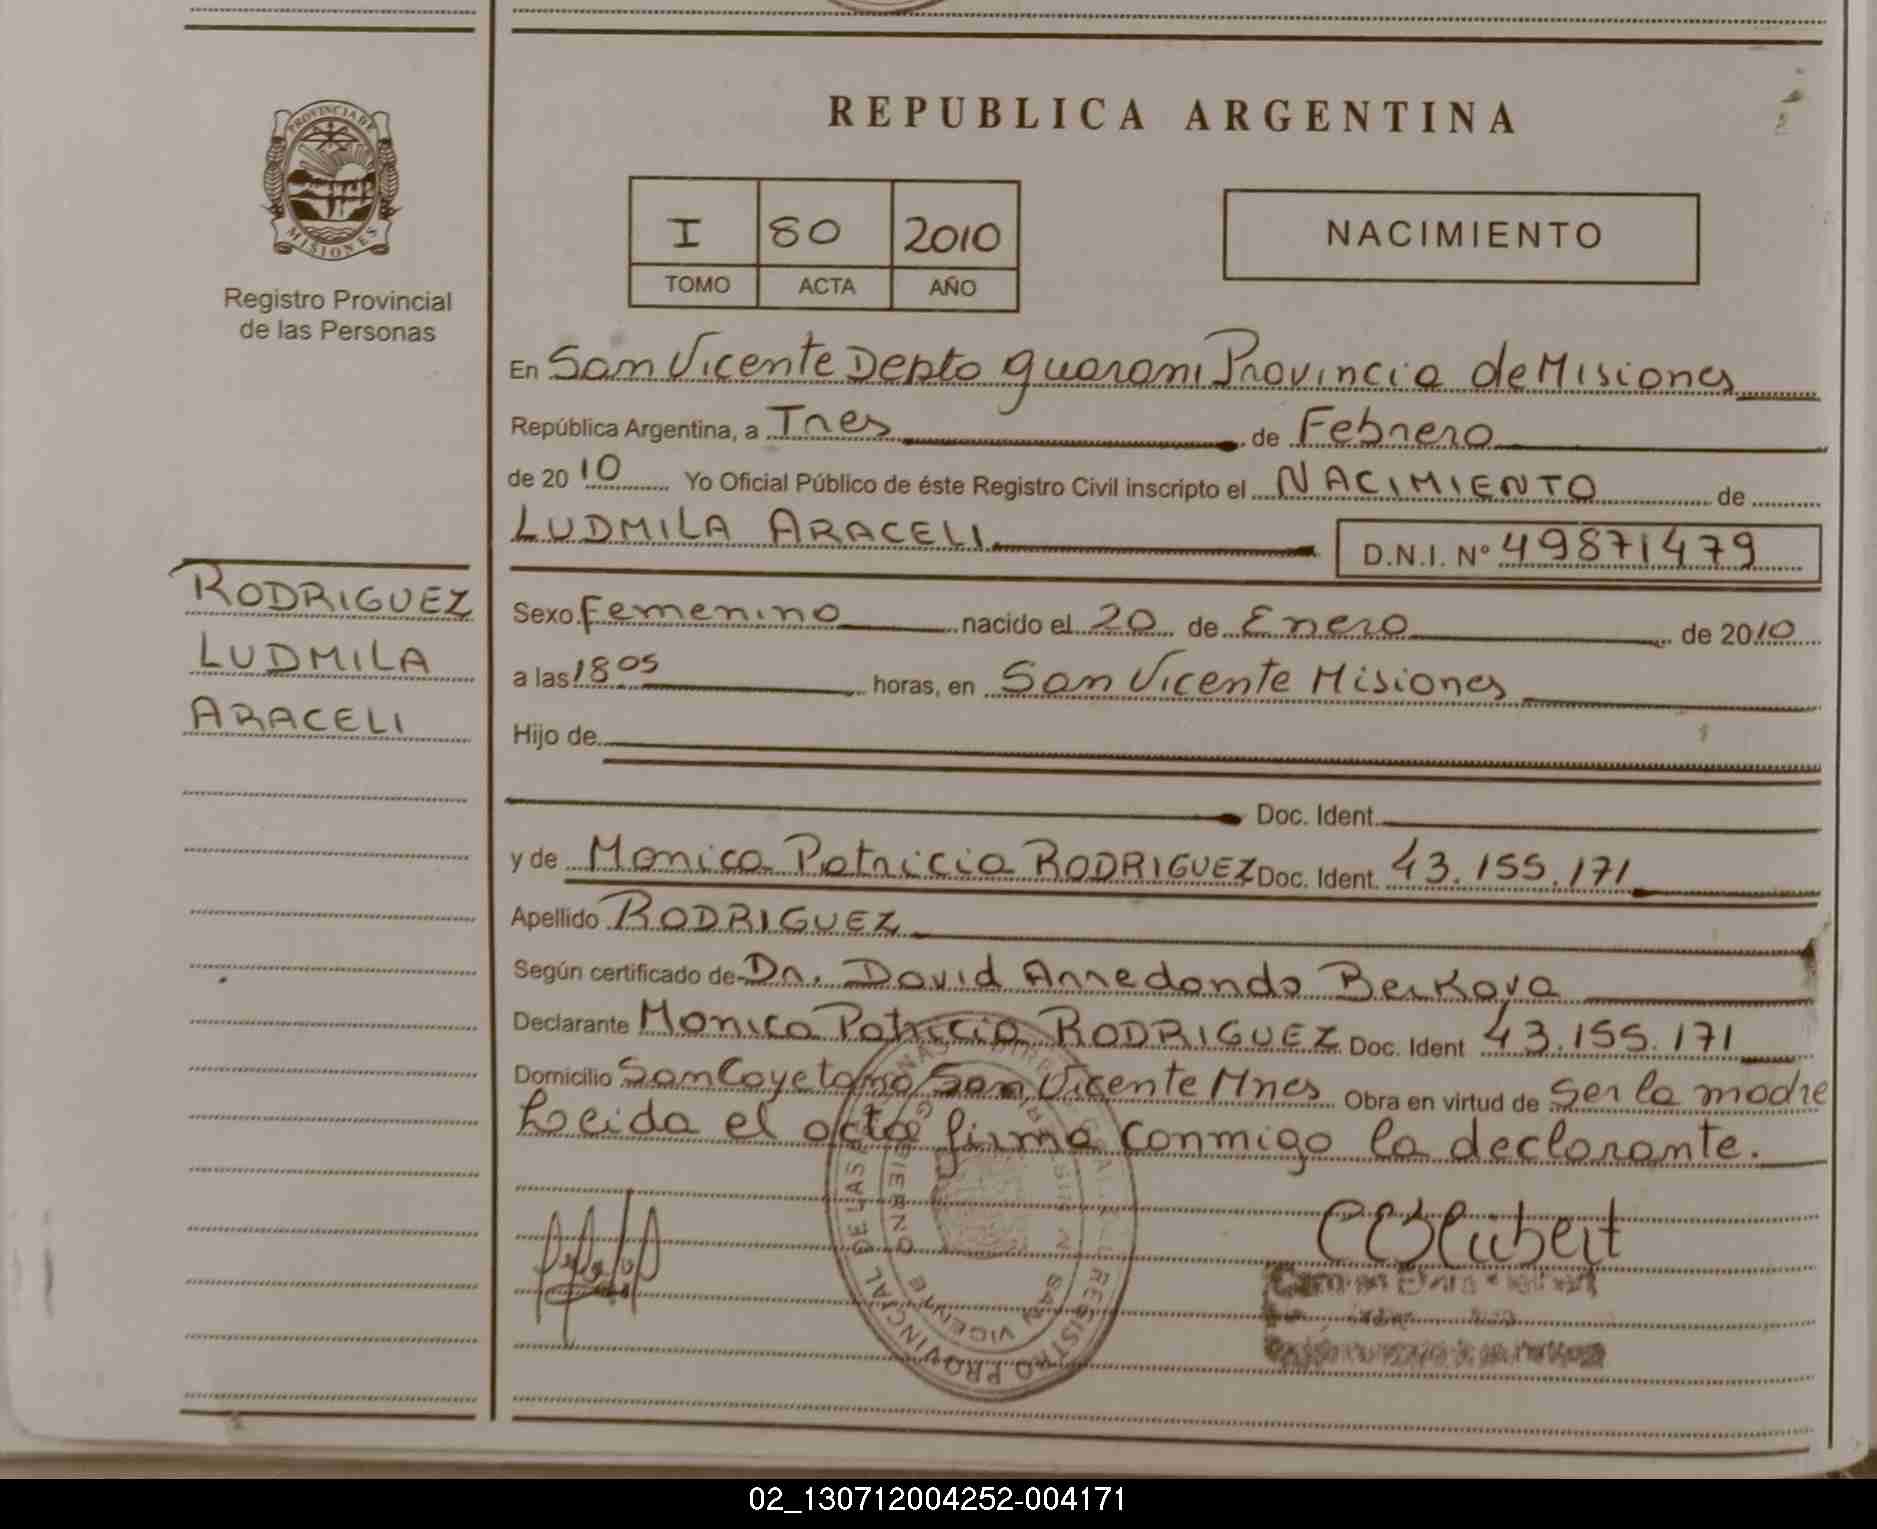 REPUBLICA ARGENTINA
PROVINCIA DE
MISIONES
Registro Provincial
de las Personas
I 80 2010
TOMO ACTA AÑO
NACIMIENTO
En San Vicente Depto guarani Provincia de Misiones
República Argentina, a Tres de Febrero
de 2010 Yo Oficial Público de éste Registro Civil inscripto el NACIMIENTO de
LUDMILA ARACELI D.N.I. Nº 49871479
RODRIGUEZ
LUDMILA
ARACELI
Sexo Femenino nacido el 20 de Enero de 2010
a las 18 05 horas, en San Vicente Misiones
Hijo de
Doc. Ident.
y de Monica Patricia RODRIGUEZ Doc. Ident. 43.155.171
Apellido RODRIGUEZ
Según certificado de Dr. David Arredondo Bekova
Declarante Monica Patricia RODRIGUEZ Doc. Ident 43.155.171
Domicilio San Cayetano San Vicente Mnes Obra en virtud de ser la madre
Leida el acta firma conmigo la declarante.
REGISTRO PROVINCIAL DE LAS
SAN VICENTE
02_130712004252-004171